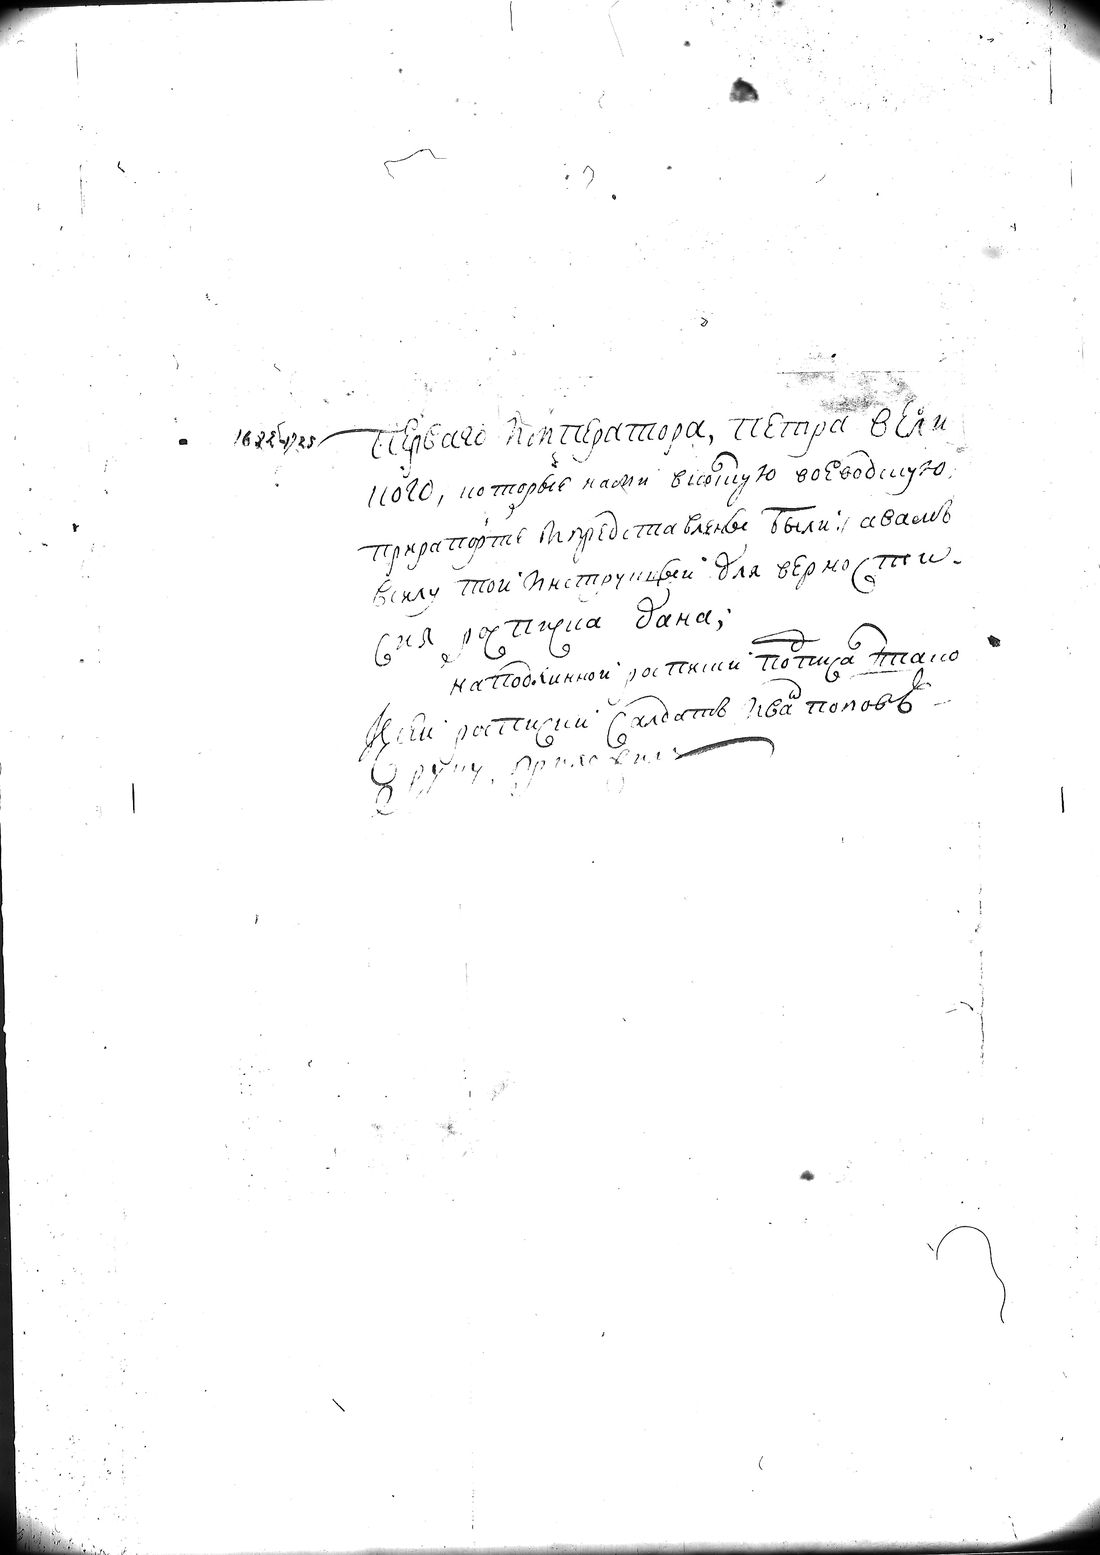 первого императора, петра вели
кого, которые нами вкоцкую воеводцкую
прирапорте ипредставлены были: авамъ
всилу тои инструкцыи для верности
сия росписка дана;
наподлинной росписки потписано тако
ксеи росписки салдатъ иванъ поповъ
руку приложилъ